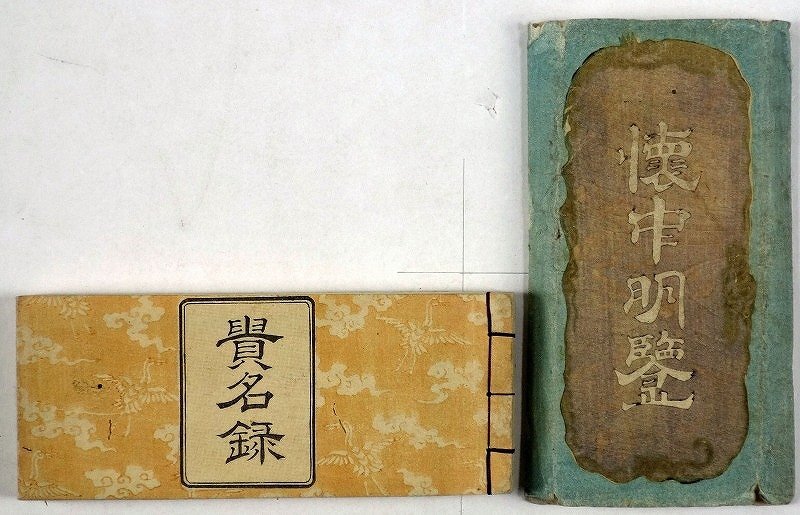 懐中明鑒
貴名録